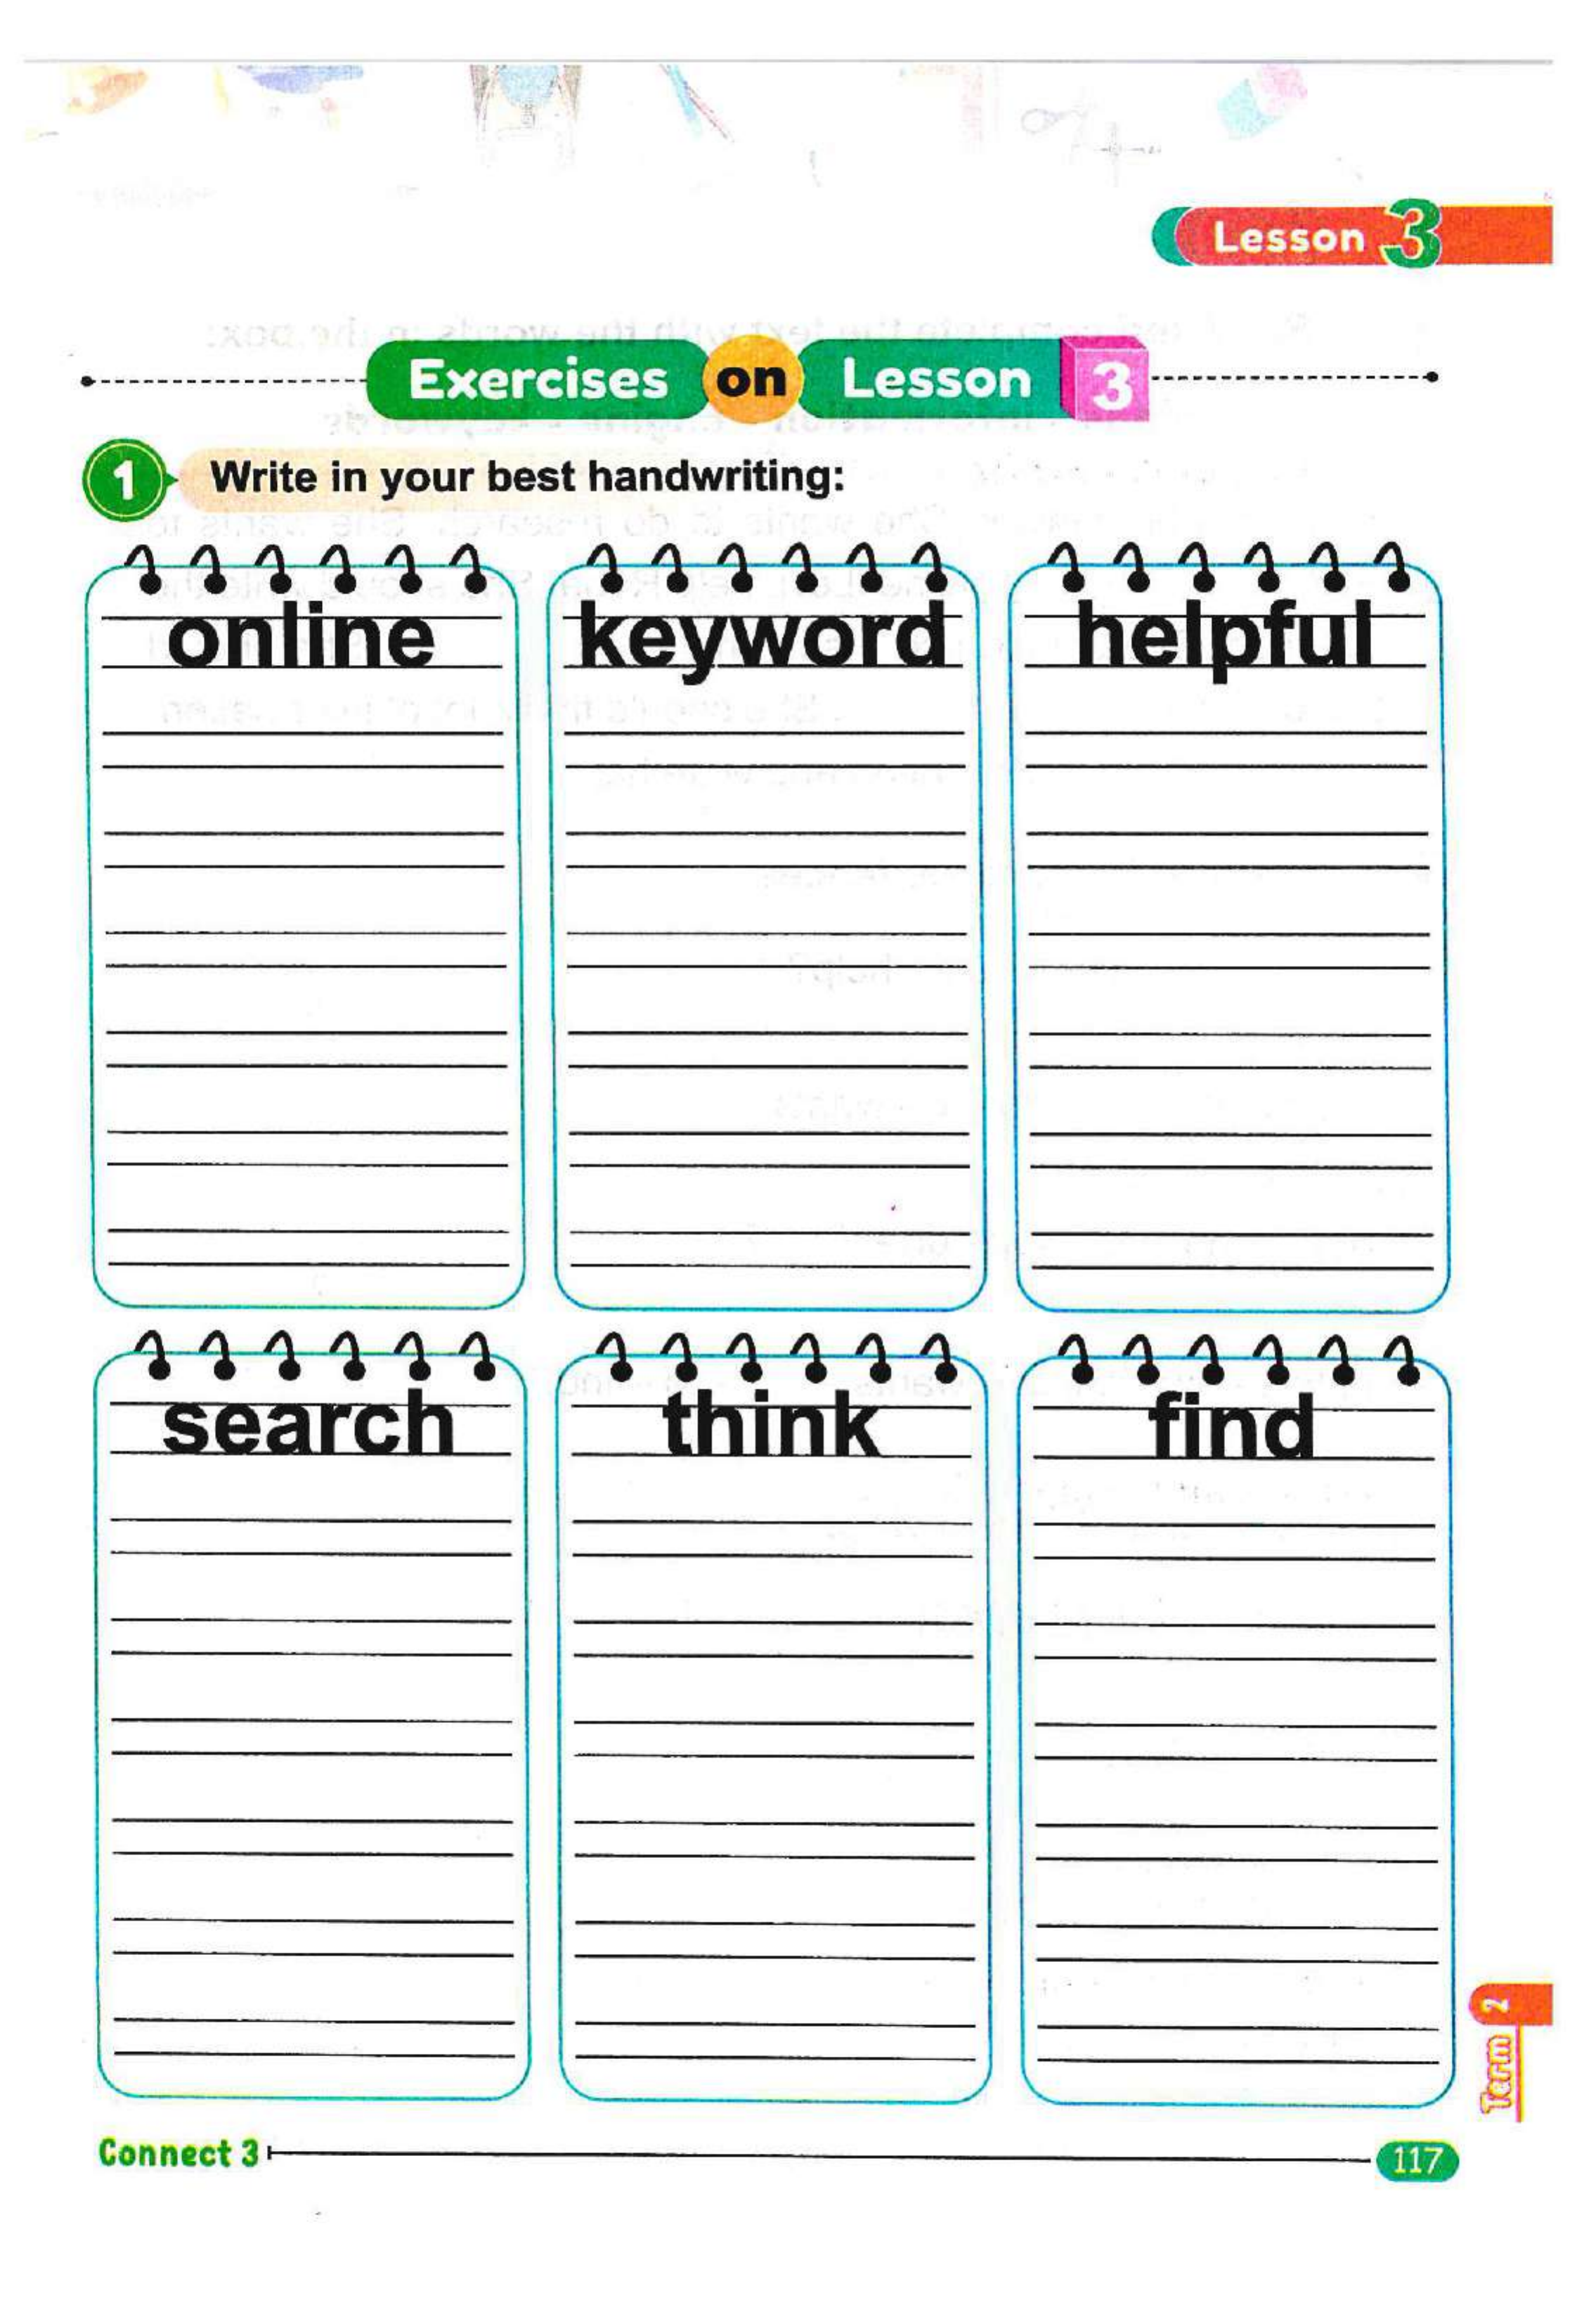 Lesson 3
Exercises on Lesson 3
1 Write in your best handwriting:
online keyword helpful
search think find
Term 2
Connect 3 117